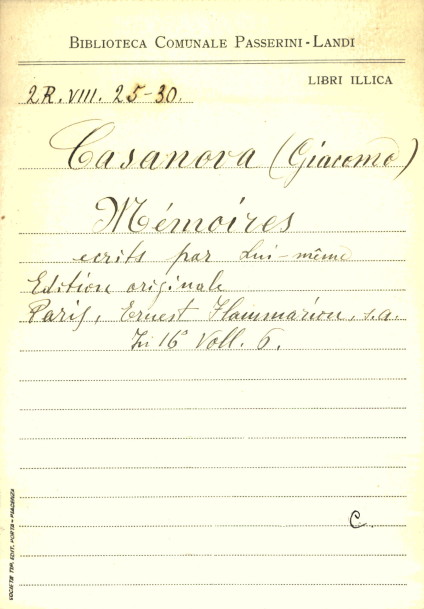 BIBLIOTECA COMUNALE PASSERINI-LANDI
LIBRI ILLICA
2R. VIII. 25-30.
Casanova (Giacomo)
Mémoires
ecrits par Lui-même
Edition originale
Paris, Ernest Flammarion, s.a.
In 16° Voll. 6.
C.
SOCIETÀ TIP. EDIT. PORTA - PIACENZA